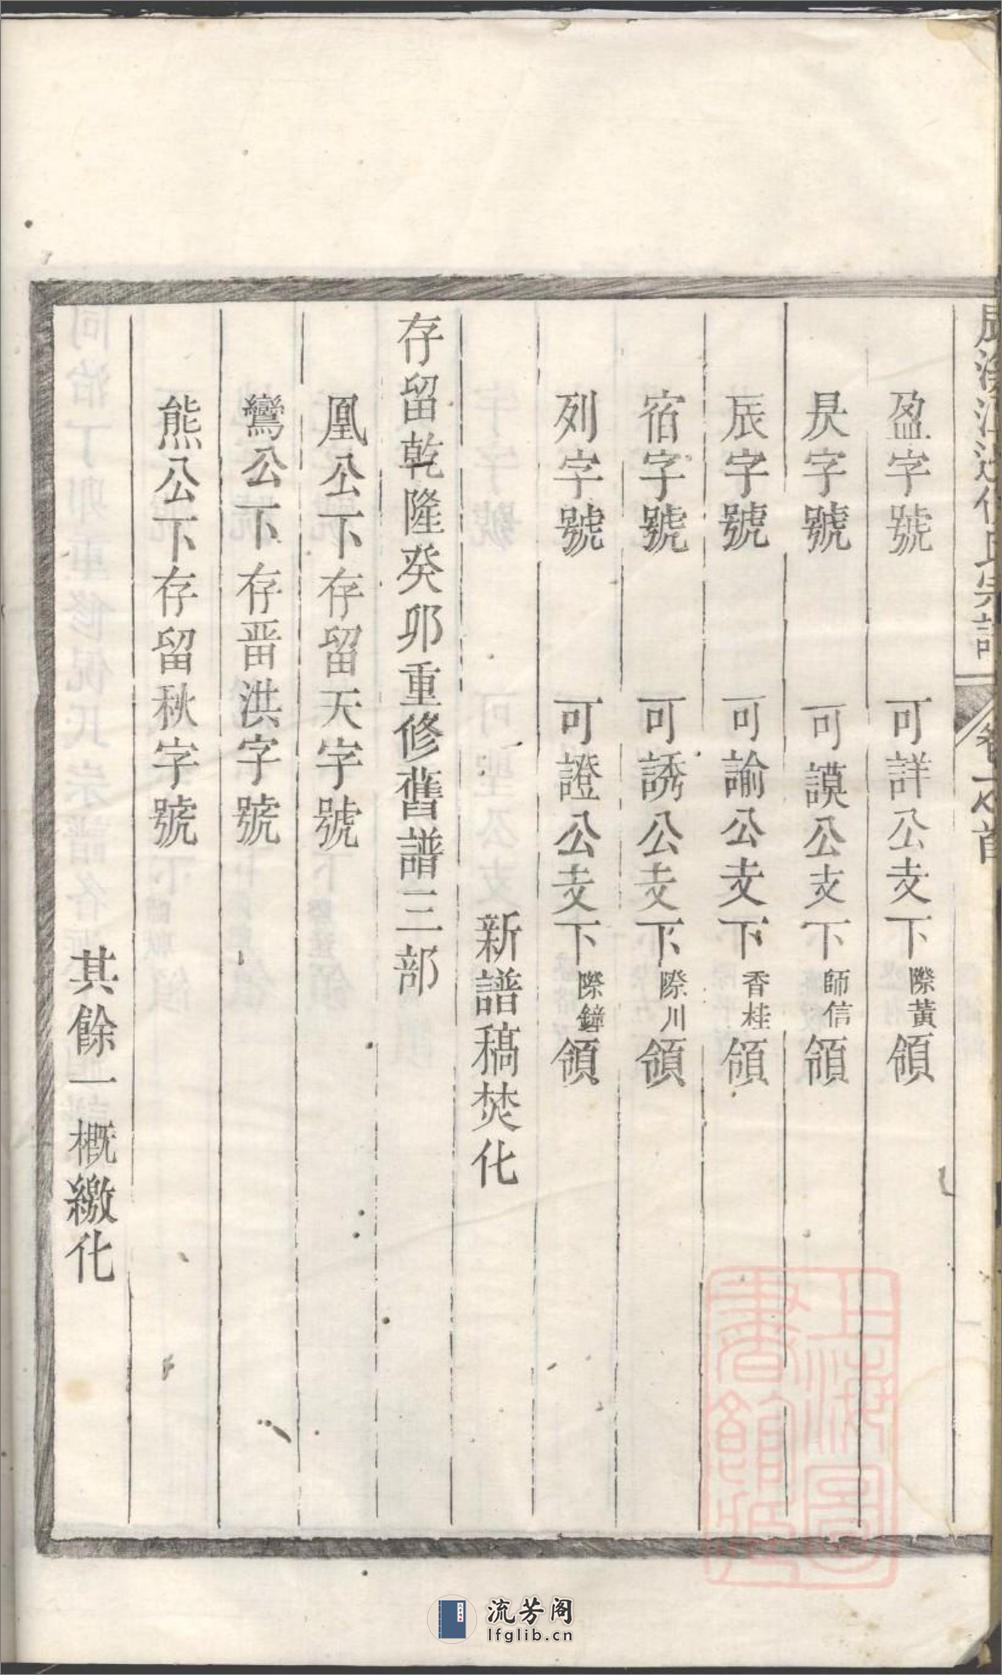 盈字號 可詳公支下際黃領
昃字號 可謨公支下師信領
辰字號 可諭公支下香桂領
宿字號 可誘公支下際川領
列字號 可證公支下際鐘領
新譜稿焚化
存留乾隆癸卯重修舊譜三部
凰公下存留天字號
鸞公下存留洪字號
熊公下存留秋字號
其餘一概繳化
上海圖書館藏
流芳阁
lfglib.cn